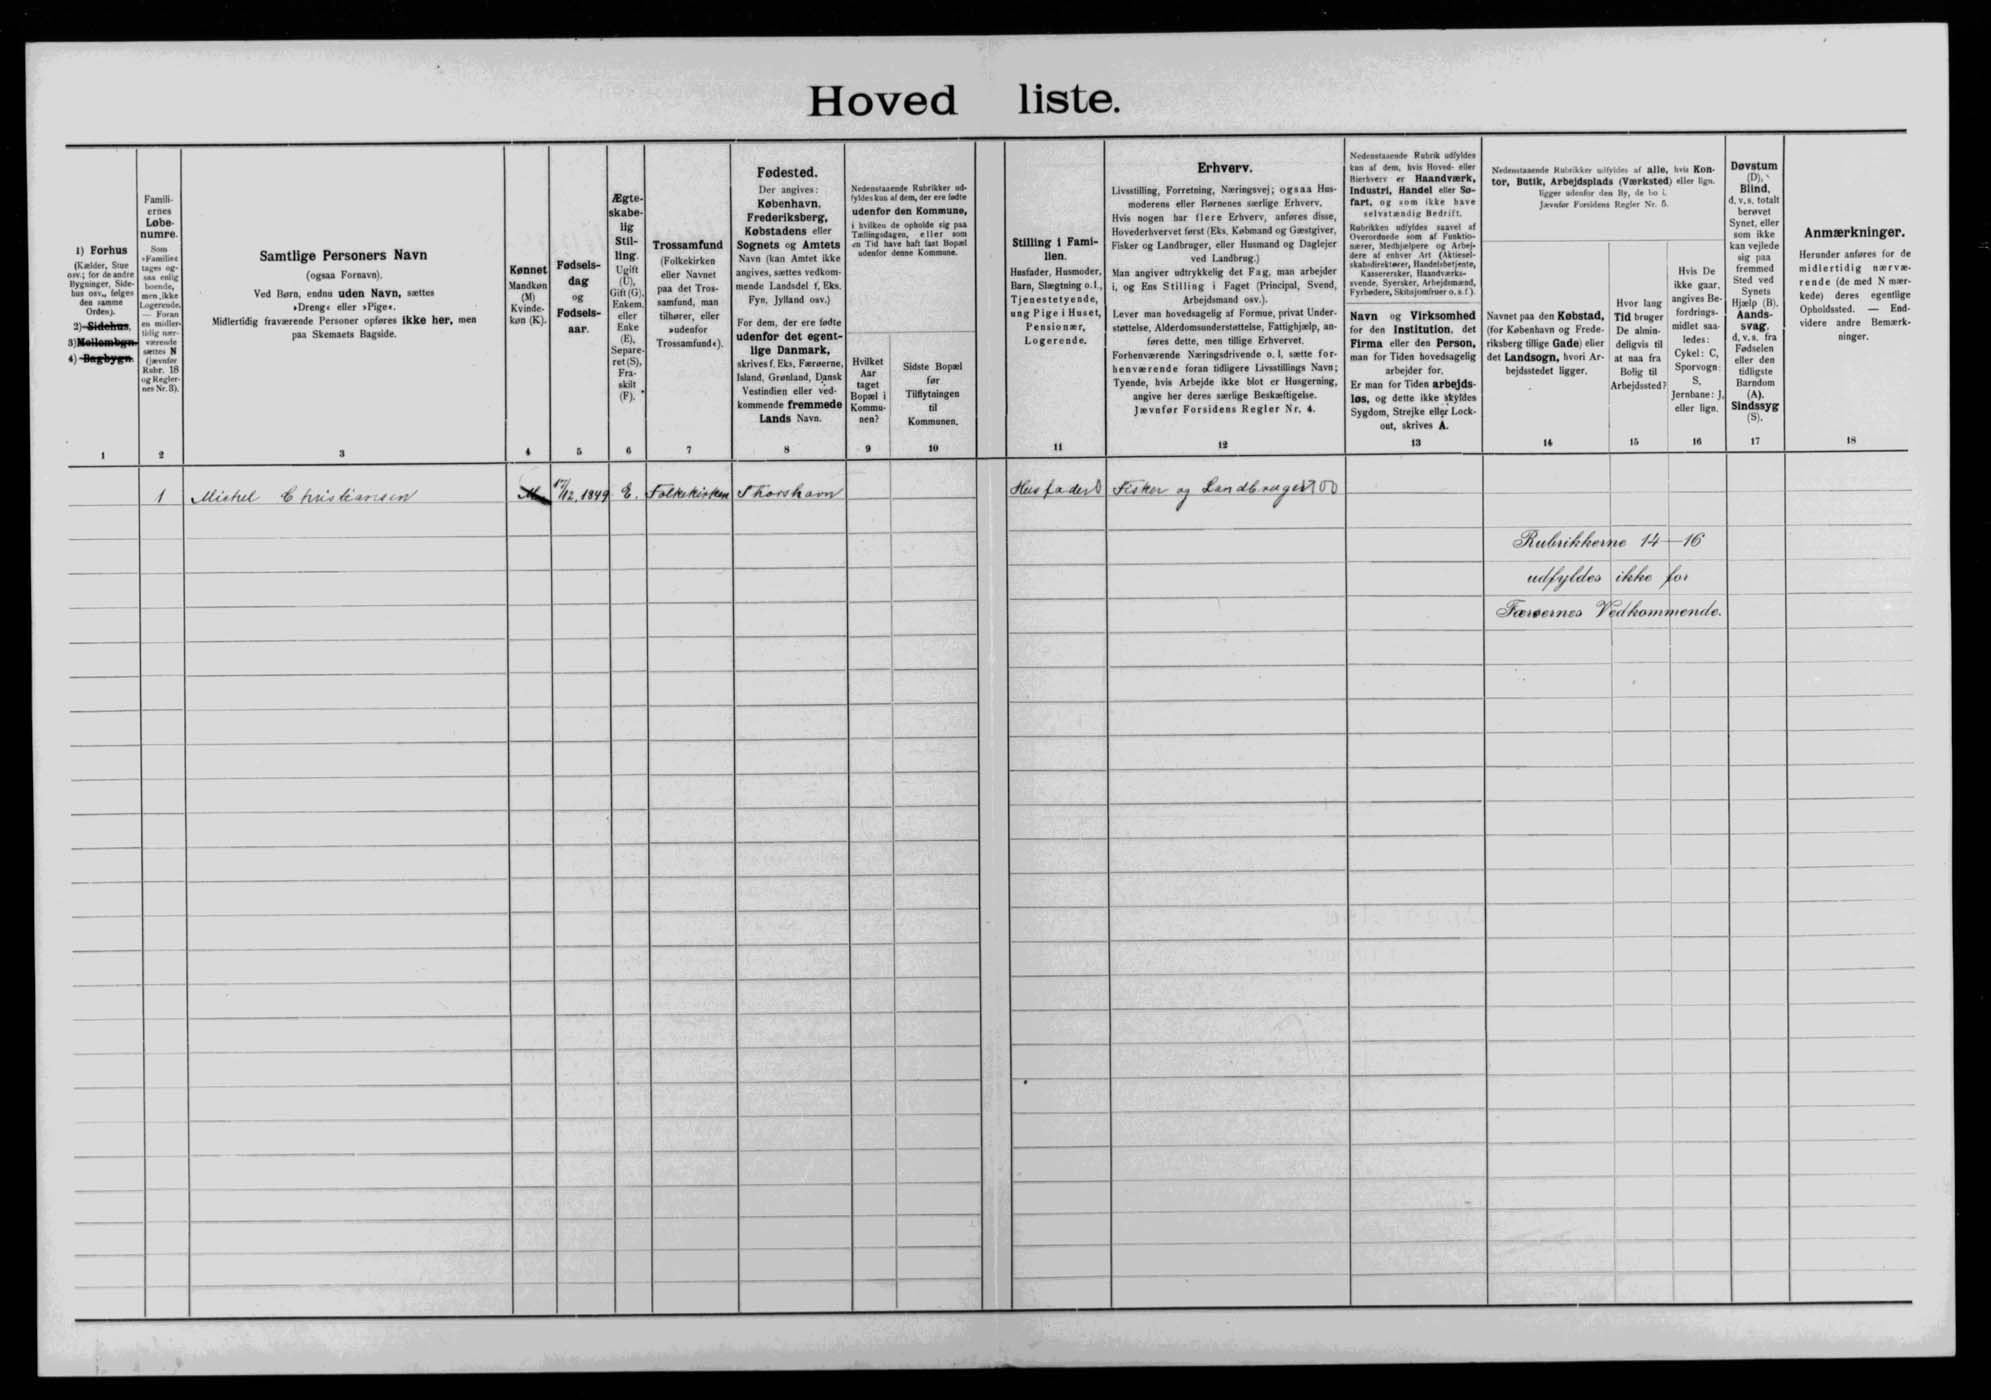 Hoved liste.
1) Forhus
(Kælder, Stue
osv.; for de andre
Bygninger, Side-
hus osv., følges
den samme
Orden).
2) Sidehus,
3) Mellembgn.
4) Bagbygn.
1
Famili-
ernes
Løbe-
numre.
Som
»Familie«
tages og-
saa enlig
boende,
men ikke
Logerende.
— Foran
en midler-
tidig nær-
værende
sættes N
(jævnfør
Rubr. 18
og Regler-
nes Nr. 3).
2
Samtlige Personers Navn
(ogsaa Fornavn).
Ved Børn, endnu uden Navn, sættes
»Dreng« eller »Pige«.
Midlertidig fraværende Personer opføres ikke her, men
paa Skemaets Bagside.
3
Kønnet
Mandkøn
(M)
Kvinde-
køn (K).
4
Fødsels-
dag
og
Fødsels-
aar.
5
Ægte-
skabe-
lig
Stil-
ling.
Ugift
(U),
Gift (G),
Enkem.
eller
Enke
(E),
Separe-
ret (S),
Fra-
skilt
(F).
6
Trossamfund
(Folkekirken
eller Navnet
paa det Tros-
samfund, man
tilhører, eller
»udenfor
Trossamfund«).
7
Fødested.
Der angives:
København,
Frederiksberg,
Købstadens eller
Sognets og Amtets
Navn (kan Amtet ikke
angives, sættes vedkom-
mende Landsdel f. Eks.
Fyn, Jylland osv.)
For dem, der ere fødte
udenfor det egent-
lige Danmark,
skrives f. Eks. Færøerne,
Island, Grønland, Dansk
Vestindien eller ved-
kommende fremmede
Lands Navn.
8
Nedenstaaende Rubrikker ud-
fyldes kun af dem, der ere fødte
udenfor den Kommune,
i hvilken de opholde sig paa
Tællingsdagen, eller som
en Tid have haft fast Bopæl
udenfor denne Kommune.
Hvilket
Aar
taget
Bopæl i
Kommu-
nen?
9
Sidste Bopæl
før
Tilflytningen
til
Kommunen.
10
Stilling i Fami-
lien.
Husfader, Husmoder,
Barn, Slægtning o. l.,
Tjenestetyende,
ung Pige i Huset,
Pensionær,
Logerende.
11
Erhverv.
Livsstilling, Forretning, Næringsvej; ogsaa Hus-
moderens eller Børnenes særlige Erhverv.
Hvis nogen har flere Erhverv, anføres disse,
Hovederhvervet først (Eks. Købmand og Gæstgiver,
Fisker og Landbruger, eller Husmand og Daglejer
ved Landbrug.)
Man angiver udtrykkelig det Fag, man arbejder
i, og Ens Stilling i Faget (Principal, Svend,
Arbejdsmand osv.).
Lever man hovedsagelig af Formue, privat Under-
støttelse, Alderdomsunderstøttelse, Fattighjælp, an-
føres dette, men tillige Erhvervet.
Forhenværende Næringsdrivende o. l. sætte for-
henværende foran tidligere Livsstillings Navn;
Tyende, hvis Arbejde ikke blot er Husgerning,
angive her deres særlige Beskæftigelse.
Jævnfør Forsidens Regler Nr. 4.
12
Nedenstaaende Rubrik udfyldes
kun af dem, hvis Hoved- eller
Bierhverv er Haandværk,
Industri, Handel eller Sø-
fart, og som ikke have
selvstændig Bedrift.
Rubrikken udfyldes saavel af
Overordnede som af Funktio-
nærer, Medhjælpere og Arbej-
dere af enhver Art (Aktiesel-
skabsdirektører, Handelsbetjente,
Kasserersker, Haandværks-
svende, Syersker, Arbejdsmænd,
Fyrbødere, Skibsjomfruer o. s. f.).
Navn og Virksomhed
for den Institution, det
Firma eller den Person,
man for Tiden hovedsagelig
arbejder for.
Er man for Tiden arbejds-
løs, og dette ikke skyldes
Sygdom, Strejke eller Lock-
out, skrives A.
13
Nedenstaaende Rubrikker udfyldes af alle, hvis Kon-
tor, Butik, Arbejdsplads (Værksted) eller lign.
ligger udenfor den By, de bo i.
Jævnfør Forsidens Regler Nr. 5.
Navnet paa den Købstad,
(for København og Frede-
riksberg tillige Gade) eller
det Landsogn, hvori Ar-
bejdsstedet ligger.
14
Hvor lang
Tid bruger
De almin-
deligvis til
at naa fra
Bolig til
Arbejdssted?
15
Hvis De
ikke gaar,
angives Be-
fordrings-
midlet saa-
ledes:
Cykel: C,
Sporvogn:
S,
Jernbane: J,
eller lign.
16
Døvstum
(D),
Blind,
d. v. s. totalt
berøvet
Synet, eller
som ikke
kan vejlede
sig paa
fremmed
Sted ved
Synets
Hjælp (B).
Aands-
svag,
d. v. s. fra
Fødselen
eller den
tidligste
Barndom
(A).
Sindssyg
(S).
17
Anmærkninger.
Herunder anføres for de
midlertidig nærvæ-
rende (de med N mær-
kede) deres egentlige
Opholdssted. — End-
videre andre Bemærk-
ninger.
18
1 Michel Christiansen M 17/12. 1849 E. Folkekirken Thorshavn Husfader Fisker og Landbruger
Rubrikkerne 14—16
udfyldes ikke for
Færøernes Vedkommende.